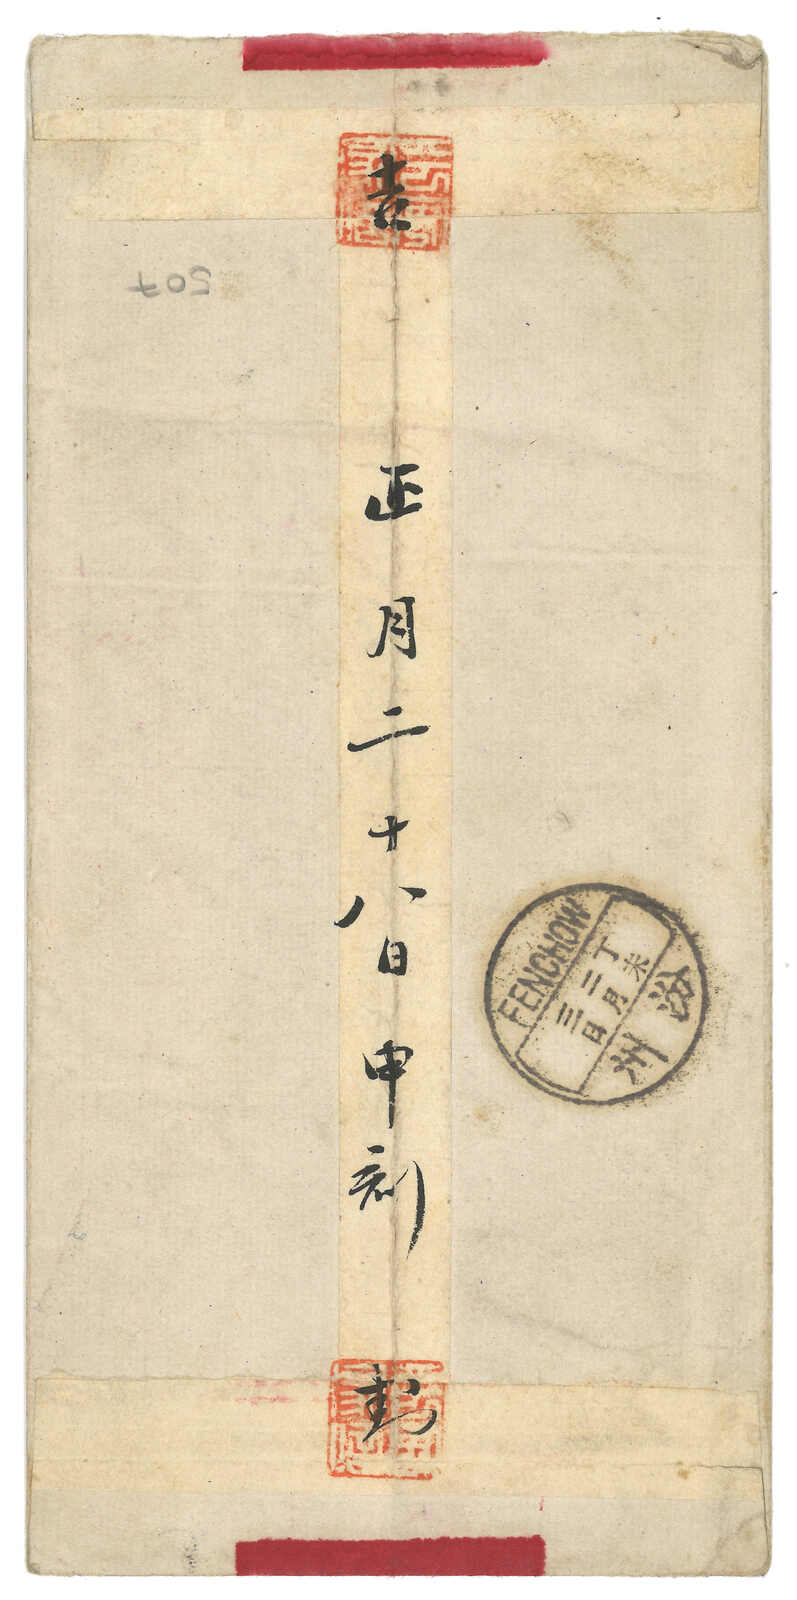 吉
正月二十八日申刻
封
FENCHOW
丁未
二月
三日
汾州
507